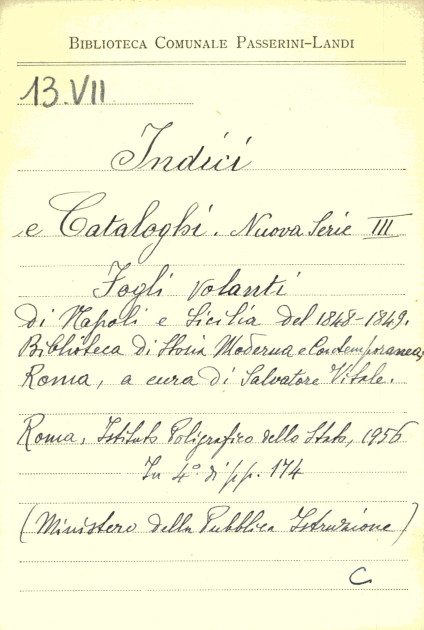 BIBLIOTECA COMUNALE PASSERINI-LANDI
13.VII
Indici
e Cataloghi. Nuova Serie III
Fogli volanti
di Napoli e Sicilia del 1848-1849.
Biblioteca di Storia Moderna e Contemporanea,
Roma, a cura di Salvatore Vitale.
Roma, Istituto Poligrafico dello Stato, 1956
In 4° di pp. 174
(Ministero della Pubblica Istruzione)
C